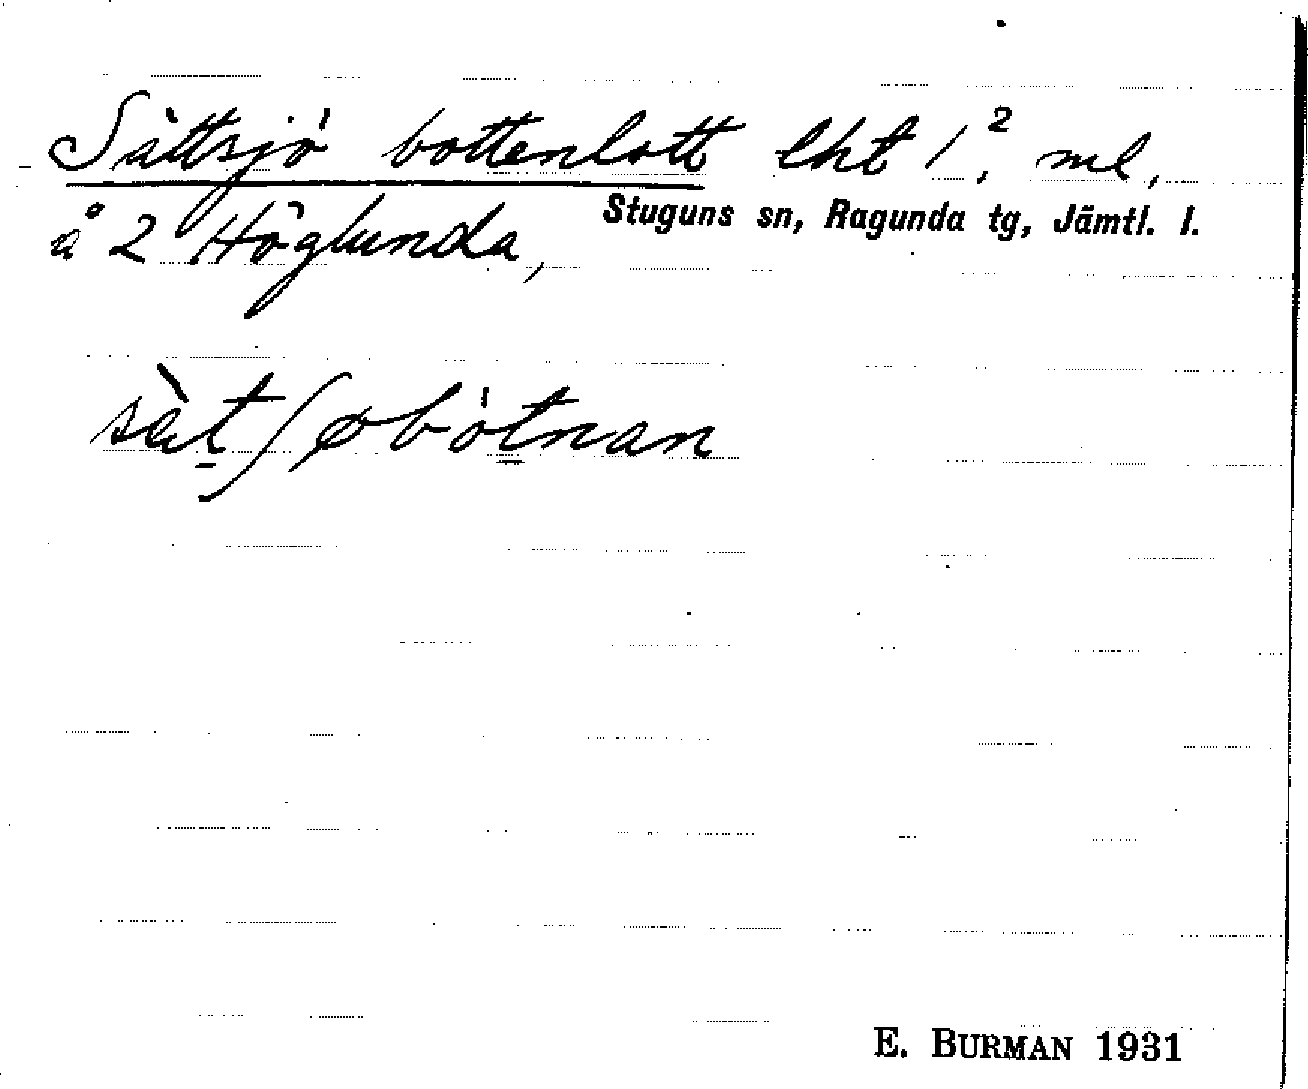 Sättsjö bottenlott lht 1.² ml,
å 2 Höglunda, Stuguns sn, Ragunda tg, Jämtl. l.
sàt∫øbòtnan
E. BURMAN 1931